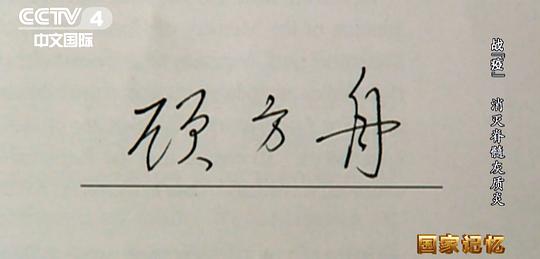 CCTV 4
中文国际
顾方舟
战“疫” 消灭脊髓灰质炎
国家记忆